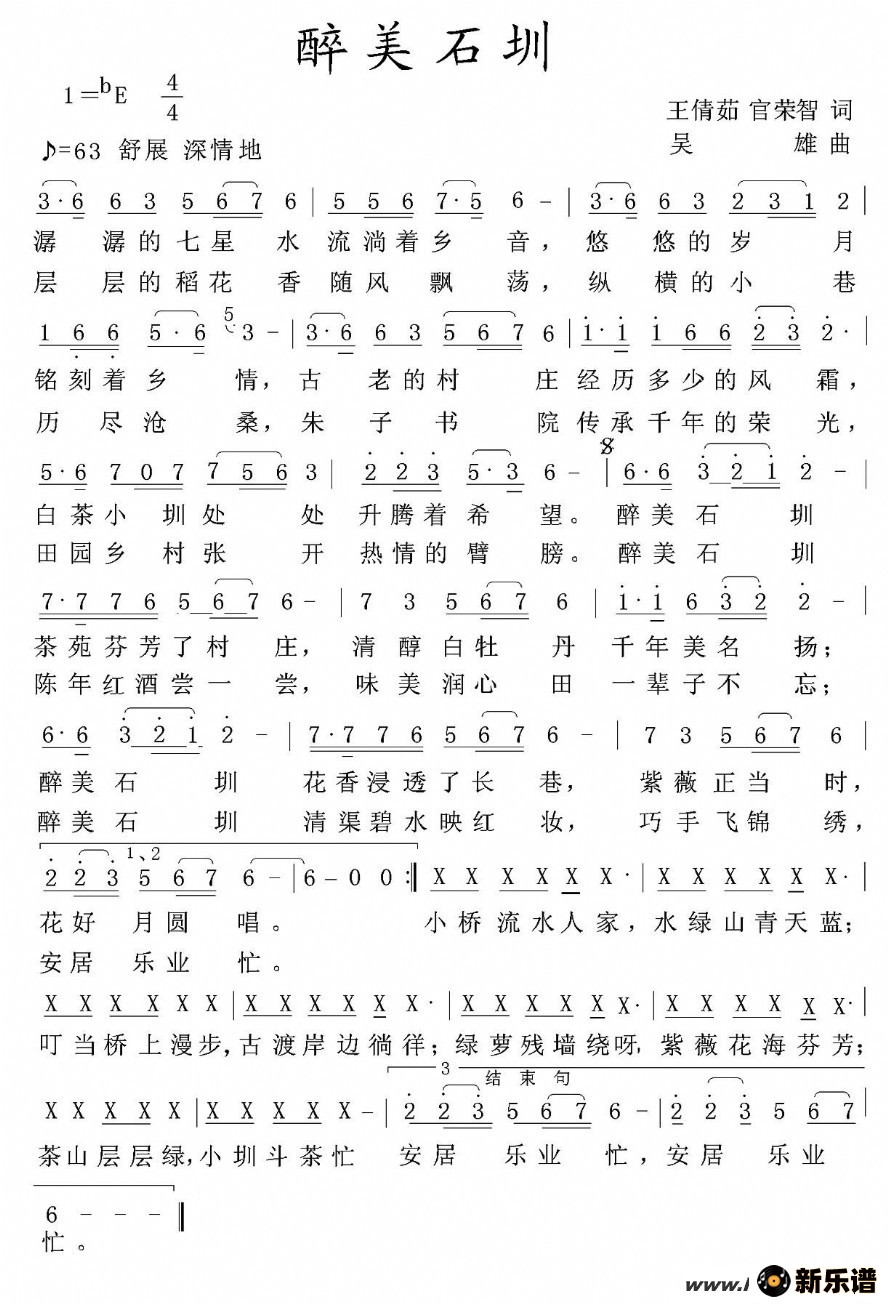 醉美石圳
1=bE 4/4
王倩茹 官荣智 词
♪=63 舒展 深情地
吴 雄 曲
3·6 6 3 5 6 7 6 | 5 5 6 7·5 6 – | 3·6 6 3 2 3 1 2 |
潺 潺的七星 水 流淌着乡 音，悠 悠的岁 月
层 层的稻花 香 随风 飘 荡，纵 横的小 巷
1 6 6 5·6 5 3 – | 3·6 6 3 5 6 7 6 | 1·1 1 6 6 2·3 2· |
铭刻着乡 情，古 老的村 庄 经历多少的风 霜，
历 尽沧 桑，朱 子 书 院传承千年的荣 光，
5·6 7 0 7 7 5 6 3 | 2 2 3 5·3 6 – | 6·6 3 2 1 2 – |
白茶小 圳处 处 升腾着希 望。 醉美石 圳
田园乡 村张 开 热情的臂 膀。 醉美石 圳
7·7 7 6 5 6 7 6 – | 7 3 5 6 7 6 | 1·1 6 3 2 2 – |
茶苑芬芳了村 庄， 清醇白牡 丹 千年美名 扬；
陈年红酒尝一 尝， 味美润心 田 一辈子不 忘；
6·6 3 2 1 2 – | 7·7 7 6 5 6 7 6 – | 7 3 5 6 7 6 |
醉美石 圳 花香浸透了长 巷， 紫薇正当 时，
醉美石 圳 清渠碧水映红 妆， 巧手飞锦 绣，
1、2
2 2 3 5 6 7 6 – – | 6 – 0 0 :‖ X X X X X X | X X X X X X· |
花好 月圆 唱。 小桥流水人家，水绿山青天蓝；
安居 乐业 忙。
X X X X X X· | X X X X X X· | X X X X X X· | X X X X X X· |
叮当桥上漫步，古渡岸边徜徉；绿萝残墙绕呀，紫薇花海芬芳；
3 结 束 句
X X X X X | X X X X X – | 2 2 3 5 6 7 6 – | 2 2 3 5 6 7 |
茶山层层绿，小圳斗茶忙 安居 乐业 忙，安居 乐业
6 – – – ‖
忙。
新乐谱